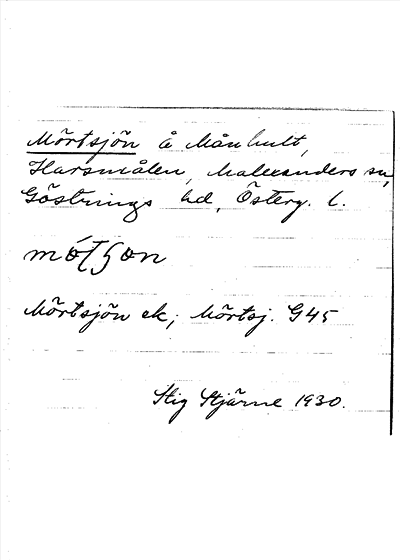 Mörtsjön å Månhult,
Harsmålen, Malexanders sn,
Göstrings hd, Österg. l.
mö́tʃøn
Mörtsjön ek; Mörtsj. G45
Stig Stjärne 1930.